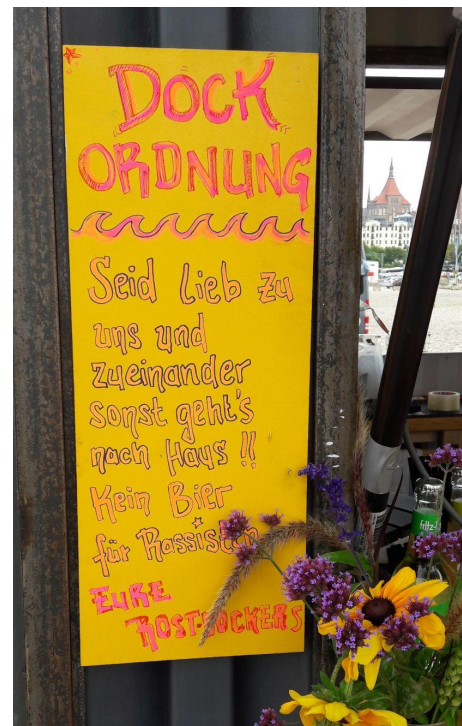 DOCK
ORDNUNG
Seid lieb zu
uns und
zueinander
sonst geht's
nach Haus !!
Kein Bier
für Rassisten
EURE
ROSTDOCKERS
fritz-